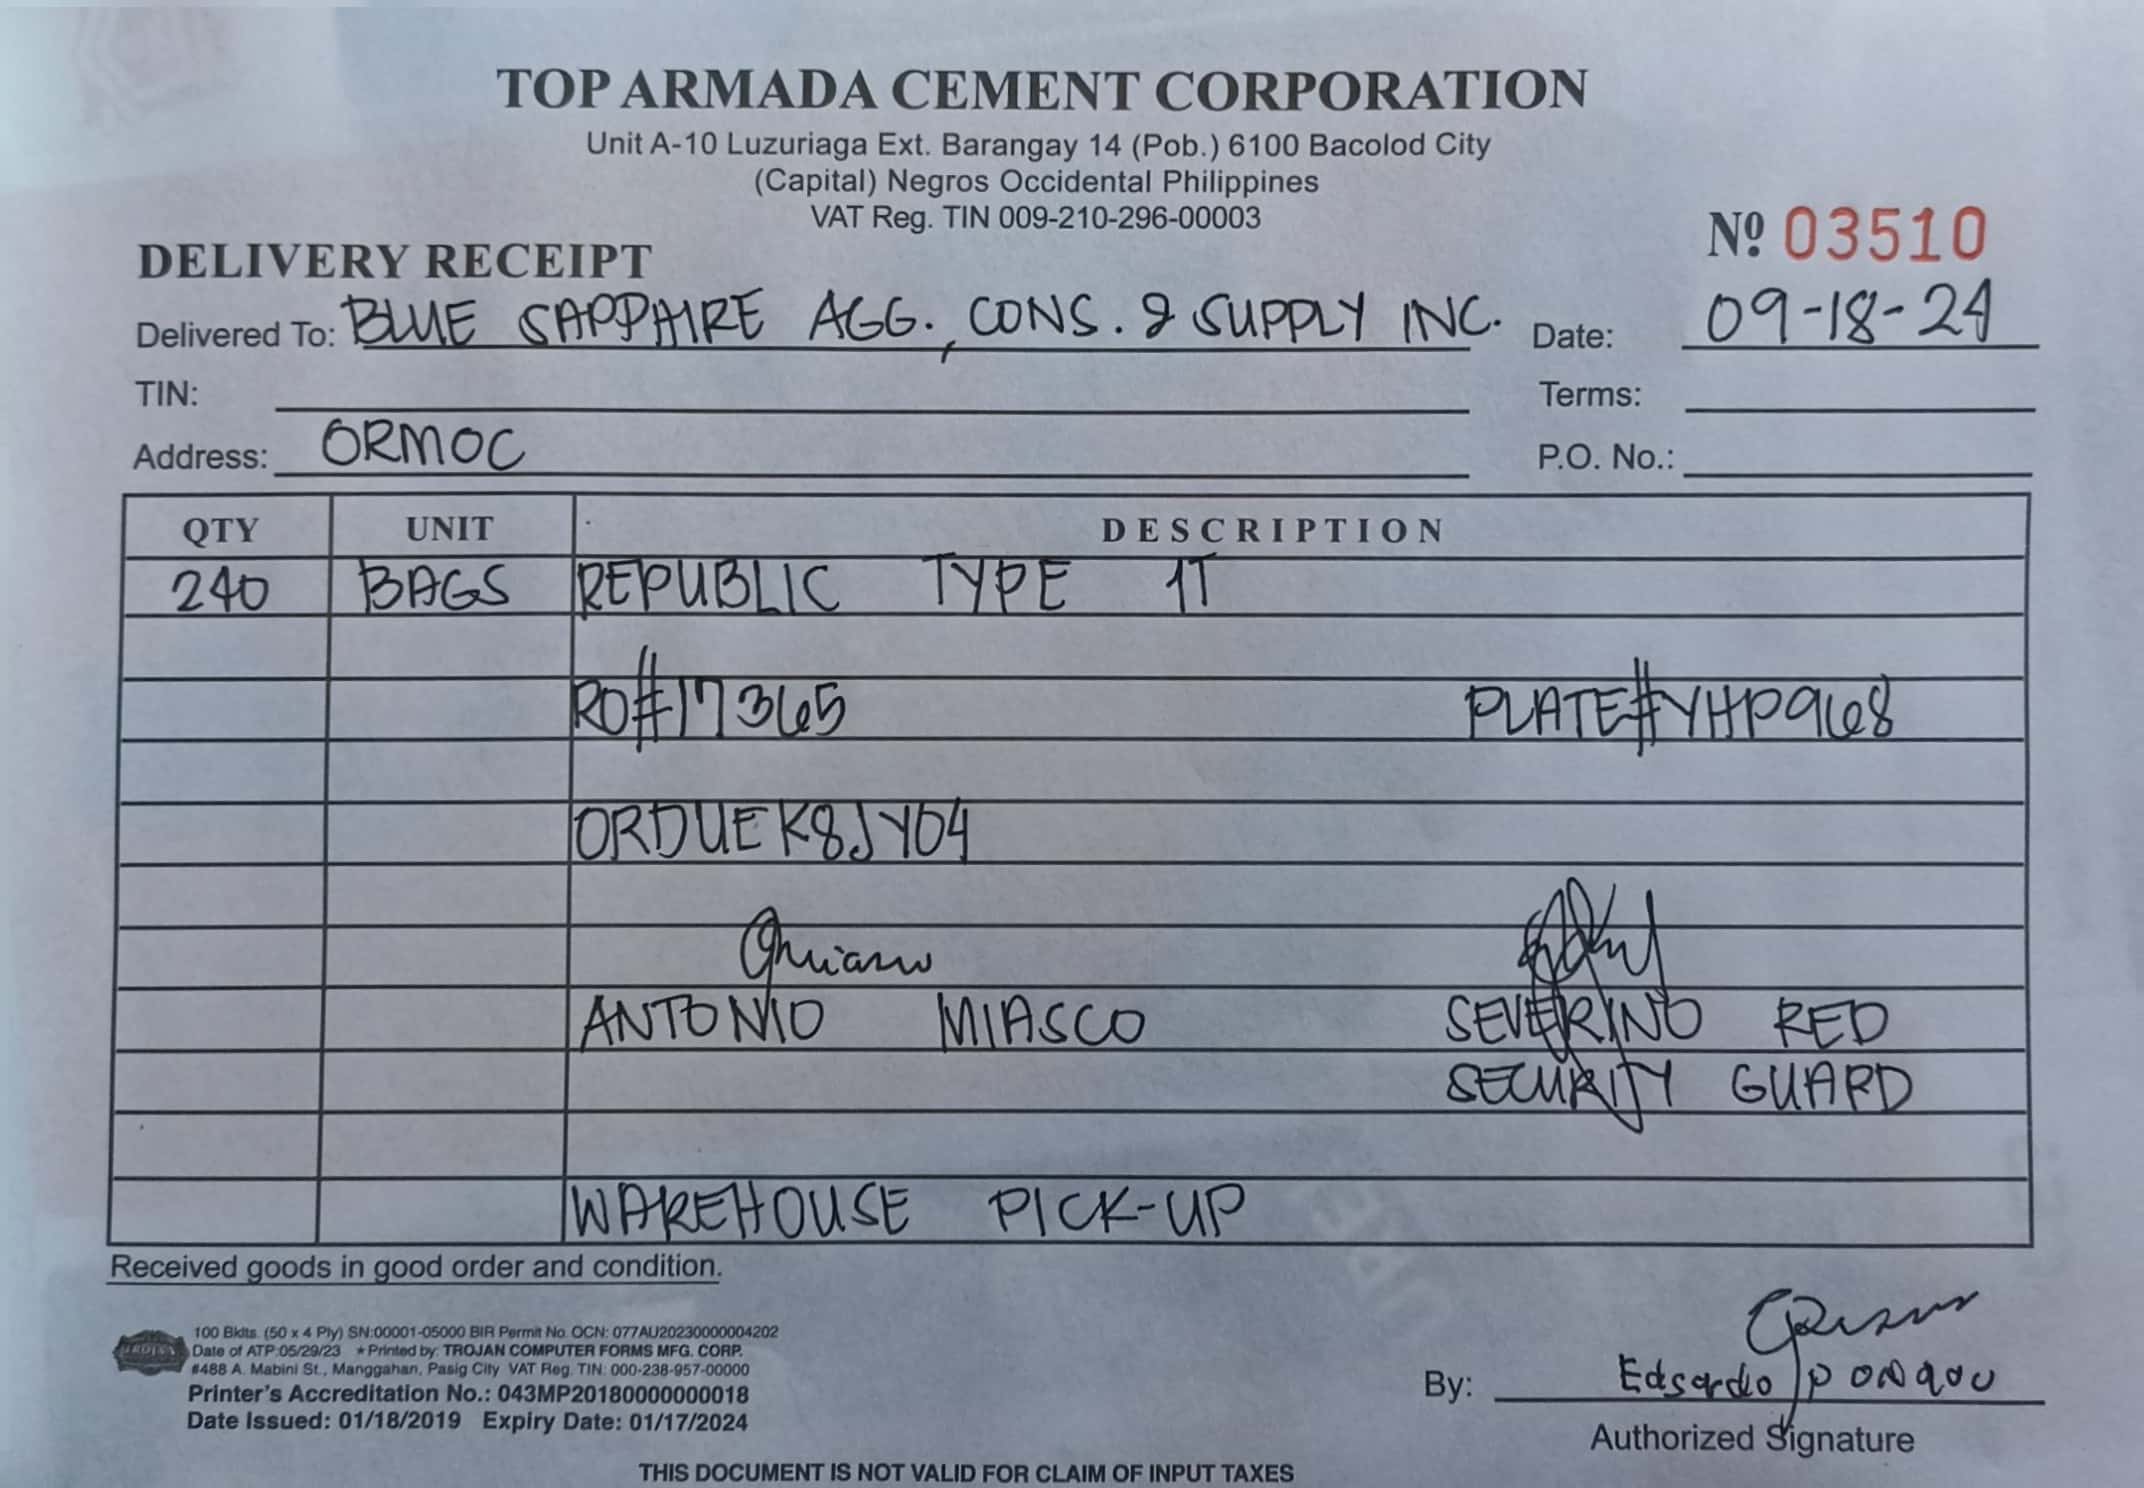 TOP ARMADA CEMENT CORPORATION
Unit A-10 Luzuriaga Ext. Barangay 14 (Pob.) 6100 Bacolod City
(Capital) Negros Occidental Philippines
VAT Reg. TIN 009-210-296-00003
Nº 03510
DELIVERY RECEIPT
Delivered To: BLUE SAPPHIRE AGG., CONS. & SUPPLY INC. Date: 09-18-24
TIN: Terms:
Address: ORMOC P.O. No.:
QTY UNIT DESCRIPTION
240 BAGS REPUBLIC TYPE 1T
RO#17365 PLATE#YHP968
ORDUEK8JY04
ANTONIO MIASCO SEVERINO RED
SECURITY GUARD
WAREHOUSE PICK-UP
Received goods in good order and condition.
100 Bklts. (50 x 4 Ply) SN:00001-05000 BIR Permit No. OCN: 077AU20230000004202
TROJAN Date of ATP:05/29/23 ★Printed by: TROJAN COMPUTER FORMS MFG. CORP.
#488 A. Mabini St., Manggahan, Pasig City VAT Reg. TIN: 000-238-957-00000
Printer's Accreditation No.: 043MP20180000000018
Date Issued: 01/18/2019 Expiry Date: 01/17/2024
By:
Authorized Signature
THIS DOCUMENT IS NOT VALID FOR CLAIM OF INPUT TAXES